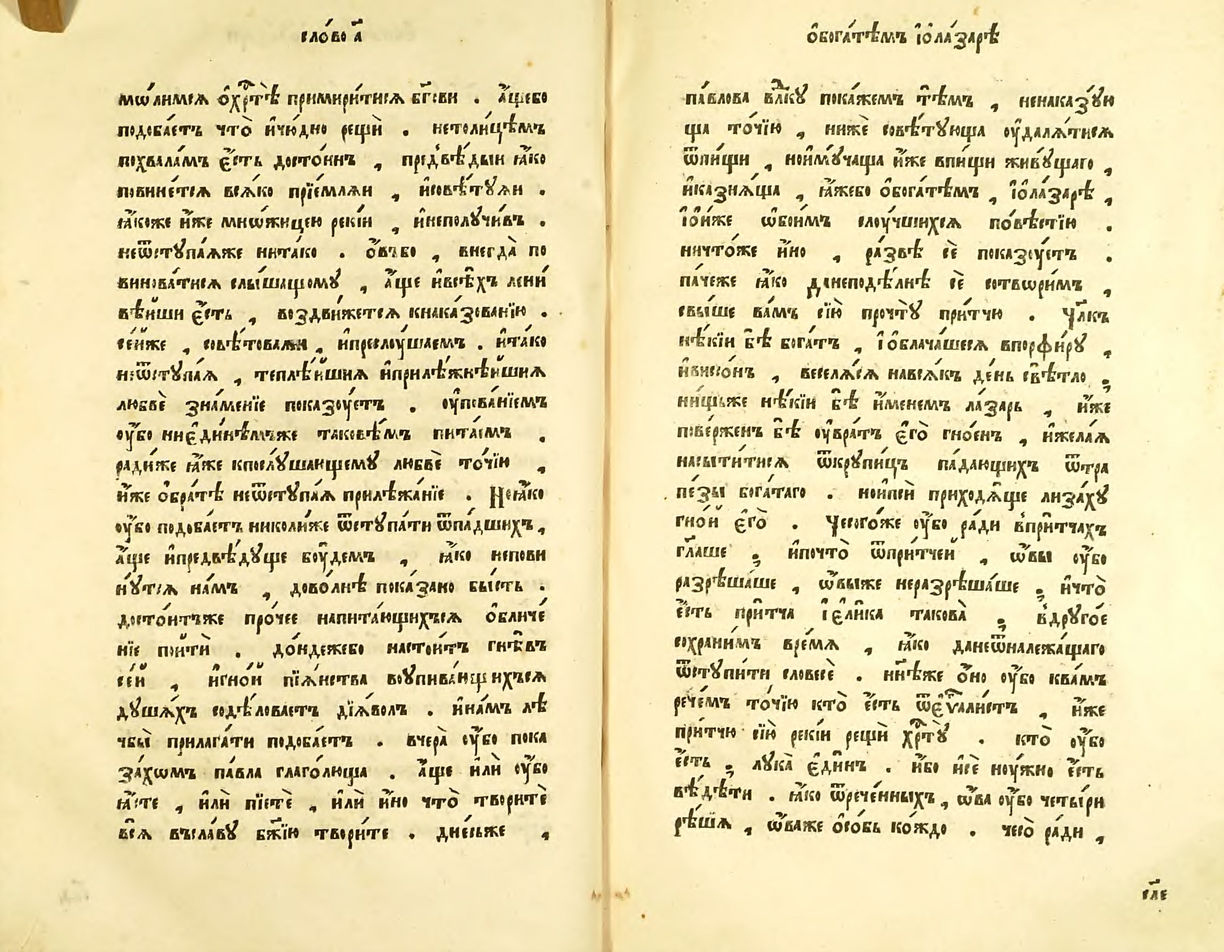 сло́во а҃
мѡ́лимсѧ ѡ҆хрⷭ҇тѣ̀ примири́тисѧ бг҃ови . а҆́щебо
подоба́етъ что̀ и҆чю́дно рещѝ . нетоли́цѣмъ
похвала́мъ є҆́сть досто́инъ , предвѣ́дыи ꙗ҆́ко
повине́тсѧ всѧ́ко прїе́млѧи , и҆совѣ́тꙋѧи .
ꙗ҆́коже и҆́же мно́жицею реки́и , и҆неполꙋчи́въ .
неѿстꙋпа́ѧже нитако . ѻ҆́въбо , внегда̀ по
винова́тисѧ слы́шащомꙋ , а҆́ще и҆всѣ́хъ лени
вѣ́иши є҆́сть , воздви́жетсѧ кнаказо́ванїю .
се́иже , совѣ́товаѧи , и҆преслоу́шаемъ . и҆та́ко
неѿстꙋпа́ѧ , теплѣ́ишиѧ и҆прилѣ́жнѣишиѧ
любвѐ зна́менїе показоу́етъ . оу҆пова́нїемъ
оу҆́бо ниє҆ди́нѣмъже тако́вѣмъ пита́емъ .
ра́диже ꙗ҆́же кпослꙋ́шающемꙋ любвѐ то́чїю ,
и҆́же ѻ҆бра́тѣ неѿстꙋпа́ѧ прилѣжа́нїе . Но꙼ꙗ҆́ко
оу҆́бо подоба́етъ николи́же ѿстꙋпа́ти ѿпа́дшихъ ,
а҆́ще и҆предвѣ́дꙋще боу́демъ , ꙗ҆́ко непови
нꙋ́тсѧ на́мъ , дово́лнѣ пока́зано бы́сть .
досто́итъже про́чее напита́ющихъсѧ ѻ҆бличе́
нїе пои́ти . до́ндежебо настои́тъ гнѣ́въ
се́й , и҆гно́й пїѧ́нства воупива́ющихъсѧ
дꙋша́хъ содѣ́ловаетъ дїѧ́волъ . и҆на́мъ лѣ
чбы̀ прилага́ти подоба́етъ . вчера̀ оу҆́бо пока
за́хомъ па́вла глаго́люща . а҆́ще и҆лѝ оу҆́бо
ꙗ҆́сте , и҆лѝ пїетѐ , и҆лѝ и҆́но что̀ творитѐ
всѧ̀ въсла́вꙋ бж҃їю твори́те . дне́сьже ,
ѻ҆бога́тѣмъ і҆ѻла́зарѣ
па́влова влⷣкꙋ пока́жемъ тѣ́мъ , ненаказꙋ́ю
ща то́чїю , нижѐ совѣ́тꙋюща оу҆далѧ́тисѧ
ѿпи́щи , нои҆мꙋ́чаща и҆́же впи́щи живꙋ́щаго ,
и҆казнѧ́ща , ꙗ҆́жебо ѻ҆бога́тѣмъ , і҆ѻла́зарѣ ,
і҆ѻи҆́же ѻ҆бои́мъ слоу́чшихсѧ по́вѣстїю .
ничто́же и҆́но , ра́звѣ сѐ показоу́етъ .
па́чеже ꙗ҆́ко данеподѣ́лнѣ сѐ сотвори́мъ ,
свы́ше ва́мъ сїю̀ прочтꙋ̀ при́тчю . Чл҃къ
нѣ́кїи бѣ̀ бога́тъ , і҆ѻблача́шесѧ впорфи́рꙋ ,
и҆висо́нъ , веселѧ́сѧ навсѧ́къ де́нь свѣ́тло ;
ни́щьже нѣ́кїи бѣ̀ и҆́менемъ ла́зарь , и҆́же
пове́рженъ бѣ̀ оу҆вра́тъ є҆го̀ гно́енъ , и҆жела́ѧ
насы́титисѧ ѿкрꙋпи́цъ па́дающихъ ѿтра
пе́зы бога́таго . нои҆псѝ приходѧ́ще лиза́хꙋ
гно́й є҆го̀ . Чесого́же оу҆́бо ра́ди впри́тчахъ
гл҃аше ; и҆почто̀ ѿпри́тчей , ѡ҆́вы оу҆́бо
разрѣша́ше , ѡ҆́выже неразрѣша́ше ; и҆что̀
є҆́сть при́тча і҆є҆ли́ка такова̀ ; вдрꙋго́е
сохрани́мъ вре́мѧ , ꙗ҆́ко данеѿналежа́щаго
ѿстꙋпи́ти словесѐ . нн҃ѣже ѻ҆но̀ оу҆́бо ква́мъ
рече́мъ то́чїю кто̀ є҆́сть ѿєѵⷢ҇али́стъ , и҆́же
при́тчю сїю̀ реки́и рещѝ хрⷭ҇тꙋ̀ . кто̀ оу҆́бо
є҆́сть ; лꙋка̀ є҆ди́нъ . и҆́бо и҆сѐ ноу́жно є҆́сть
вѣ́дѣти . ꙗ҆́ко ѿрече́нныхъ , ѡ҆́ва оу҆́бо четы́ри
рѣ́шѧ , ѡ҆́важе ѻ҆со́бь ко́ждо . чесо̀ ра́ди ,
єле